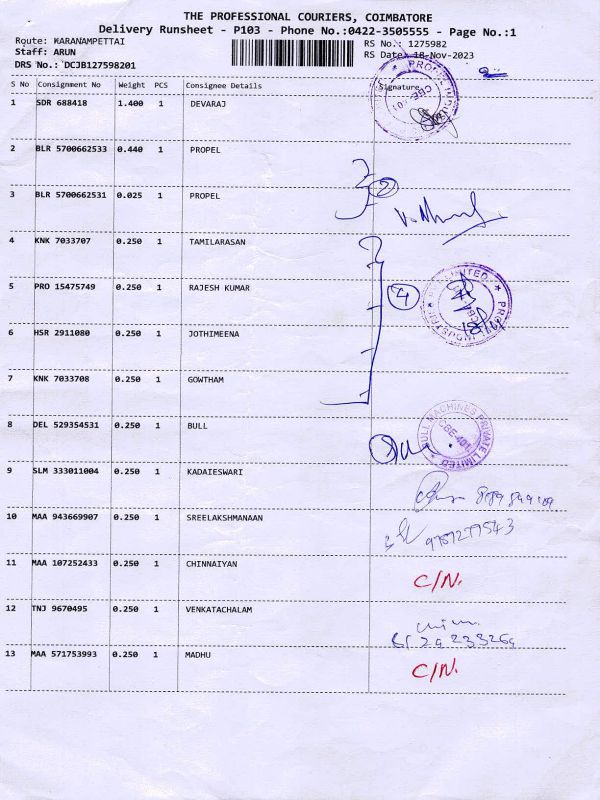 THE PROFESSIONAL COURIERS, COIMBATORE
Delivery Runsheet - P103 - Phone No.:0422-3505555 - Page No.:1
Route: KARANAMPETTAI RS No.: 1275982
Staff: ARUN RS Date: 18-Nov-2023
DRS No.: DCJB127598201
S No Consignment No Weight PCS Consignee Details Signature
1 SDR 688418 1.400 1 DEVARAJ
2 BLR 5700662533 0.440 1 PROPEL
2
3 BLR 5700662531 0.025 1 PROPEL
4 KNK 7033707 0.250 1 TAMILARASAN
5 PRO 15475749 0.250 1 RAJESH KUMAR
4
6 HSR 2911080 0.250 1 JOTHIMEENA
7 KNK 7033708 0.250 1 GOWTHAM
8 DEL 529354531 0.250 1 BULL
BULL MACHINES PRIVATE LIMITED
9 SLM 333011004 0.250 1 KADAIESWARI
10 MAA 943669907 0.250 1 SREELAKSHMANAAN
11 MAA 107252433 0.250 1 CHINNAIYAN C/N.
12 TNJ 9670495 0.250 1 VENKATACHALAM
13 MAA 571753993 0.250 1 MADHU C/N.